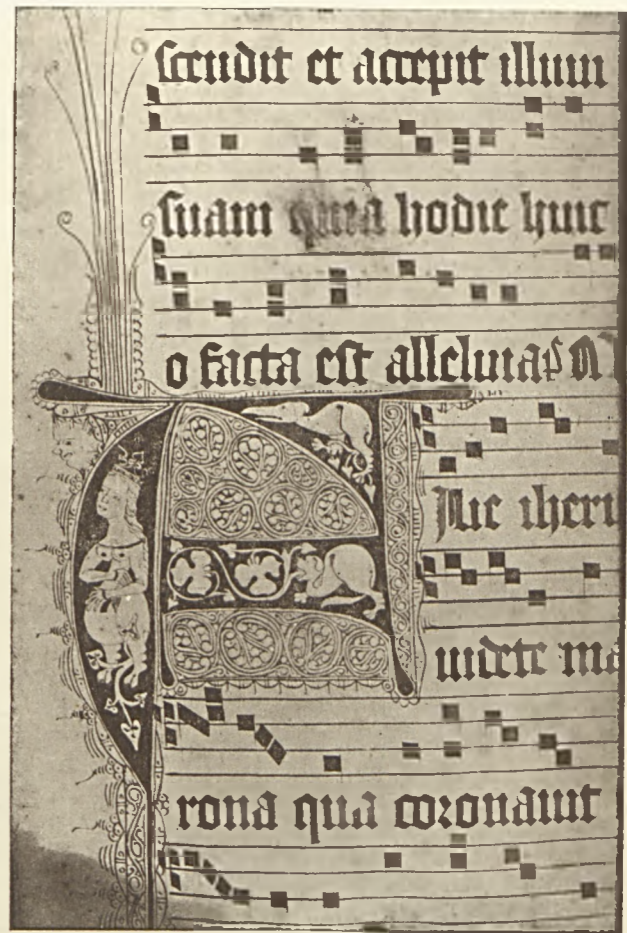 scendit et accepit illum
suam quia hodie huic
o facta est alleluia
FIlie iheru
uidete ma
rona qua coronauit